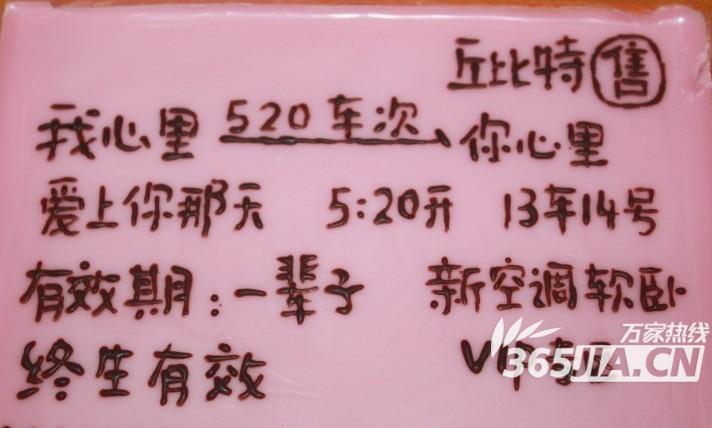 丘比特 售
我心里 520车次 你心里
爱上你那天 5:20开 13车14号
有效期:一辈子 新空调软卧
终生有效 VIP
万家热线
365JIA.CN